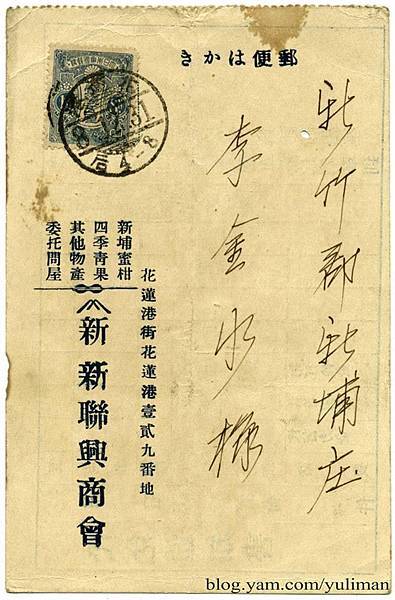 郵便はかき
新竹郡新埔庄
李金水様
新埔蜜柑
四季青果
其他物產
委托問屋
花蓮港街花蓮港壹貳九番地
新 新聯興商會
blog.yam.com/yuliman